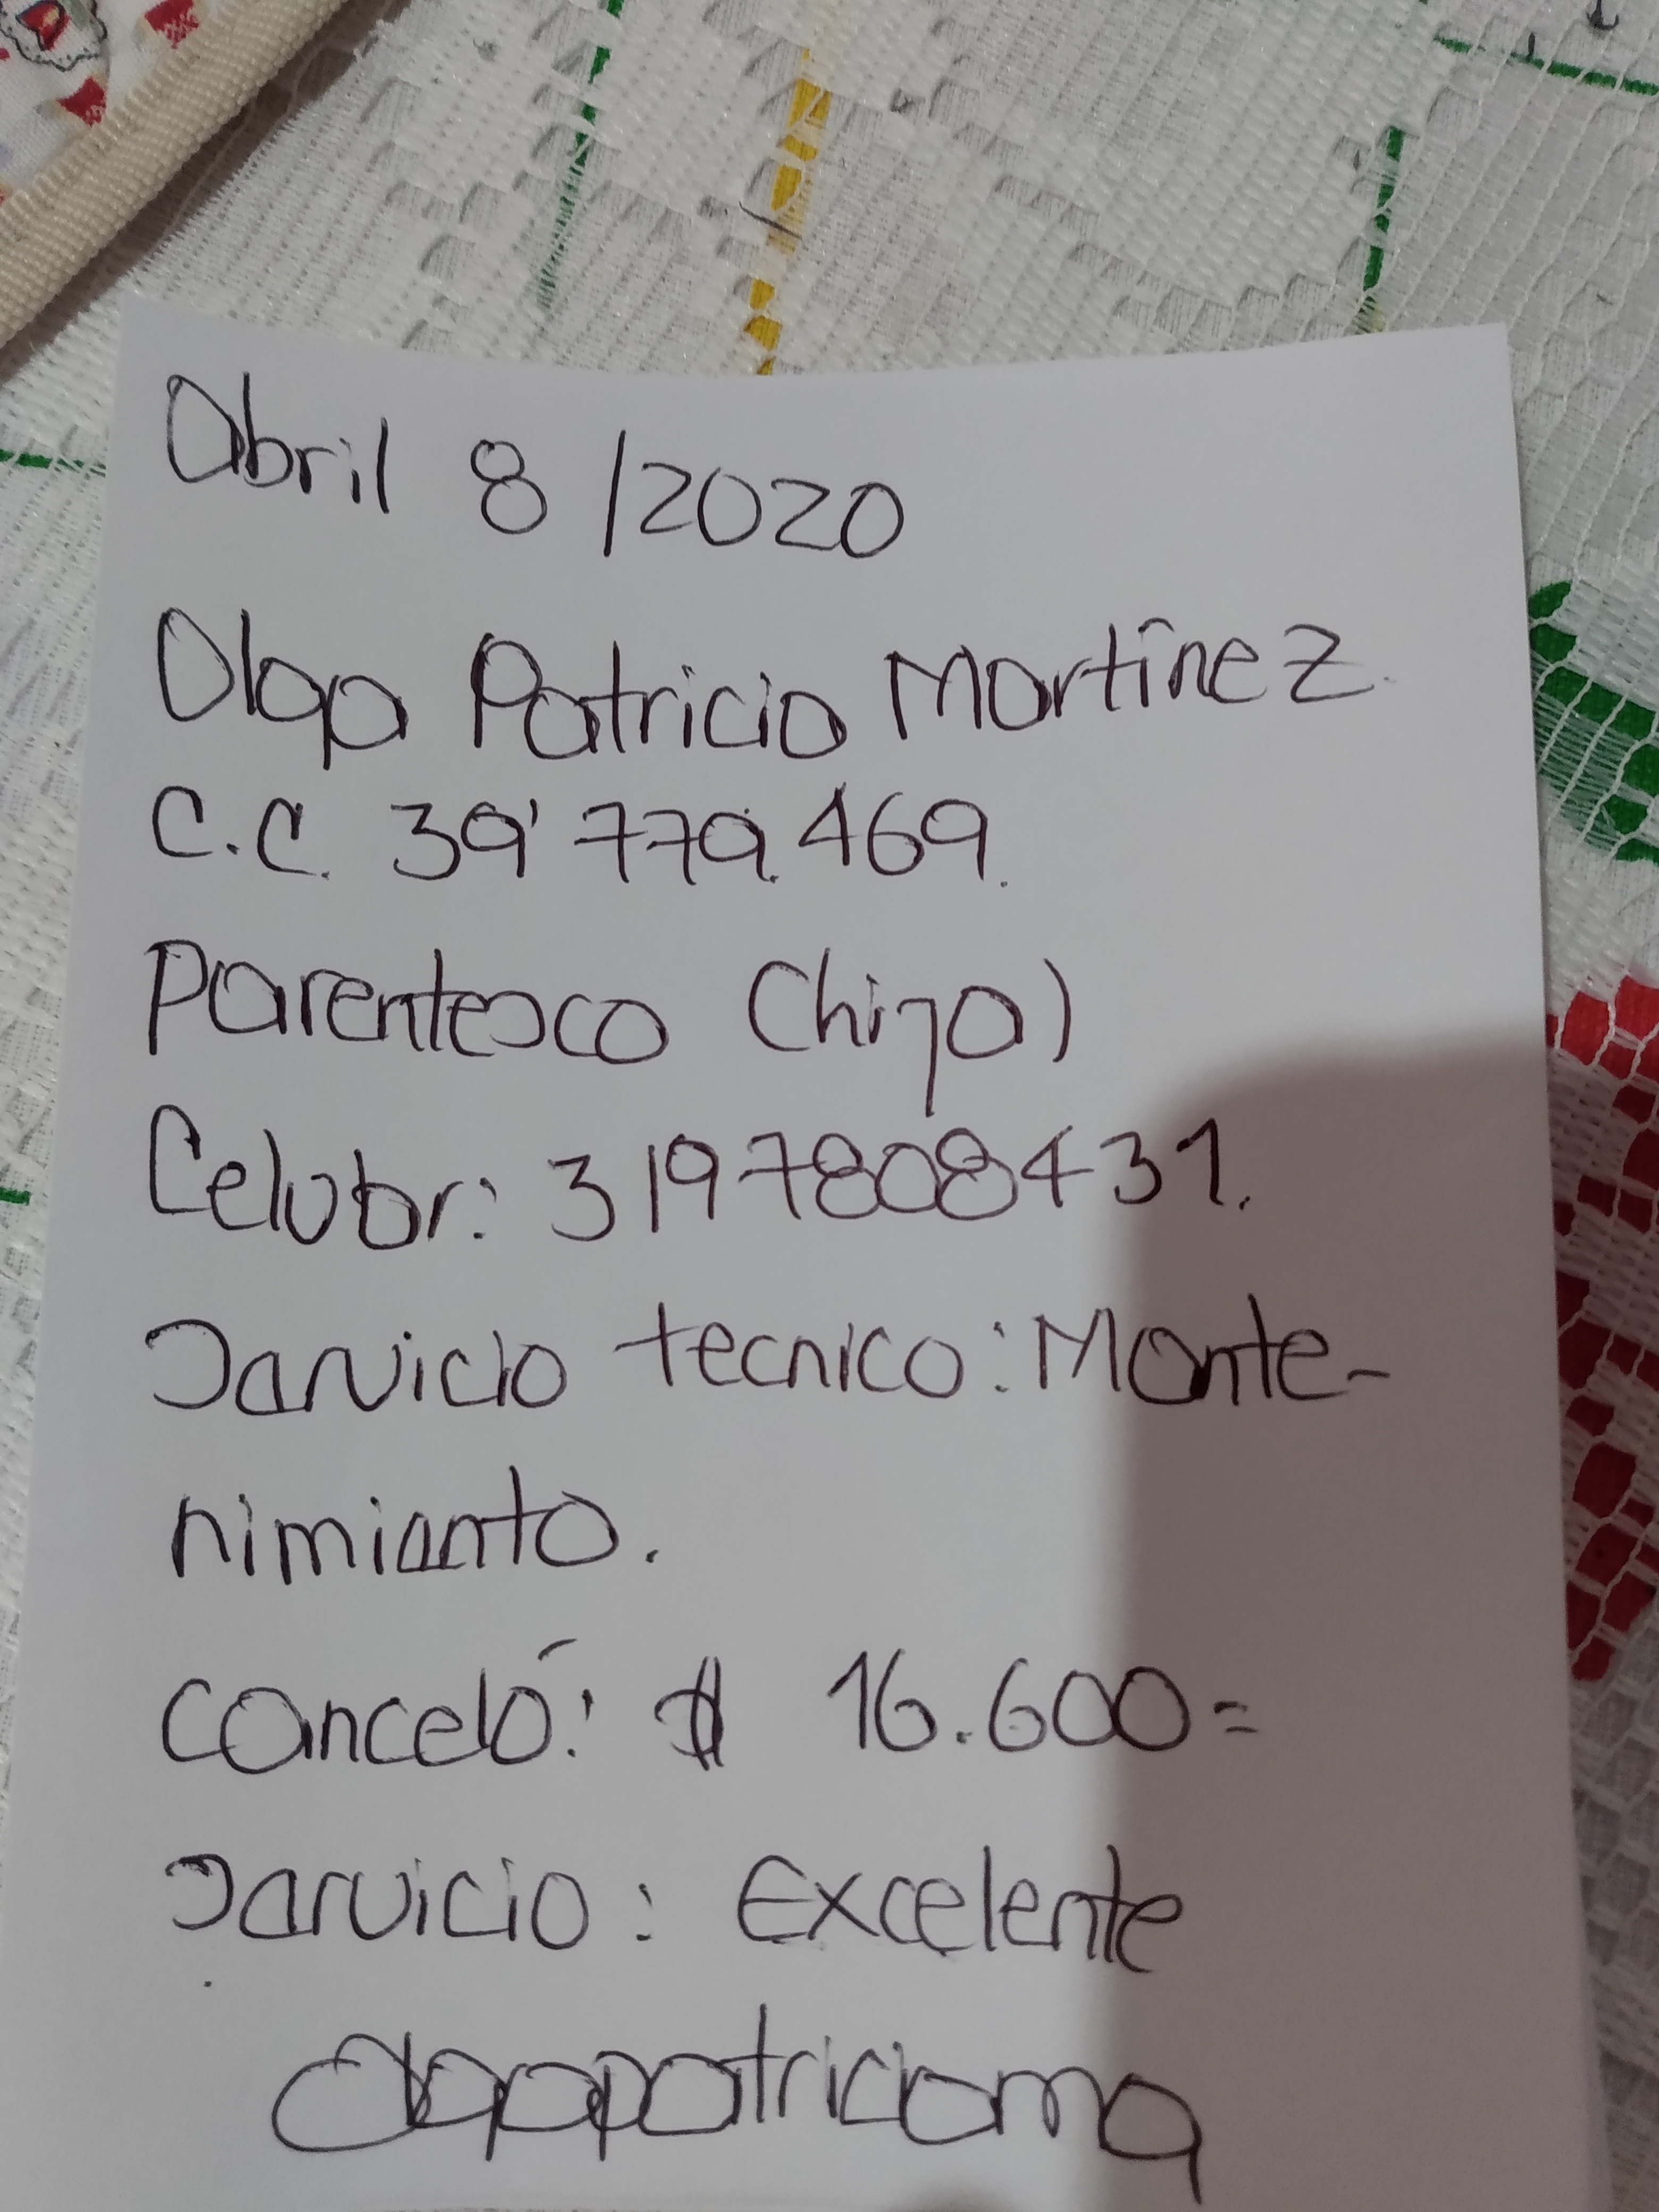 Abril 8/2020
Olga Patricia Martinez.
C.C. 39'779.469.
Parentesco (hija)
Celular: 3197808431.
Servicio tecnico: Mante-
nimiento.
canceló: $ 16.600=
Servicio: Excelente
Olgapatriciama